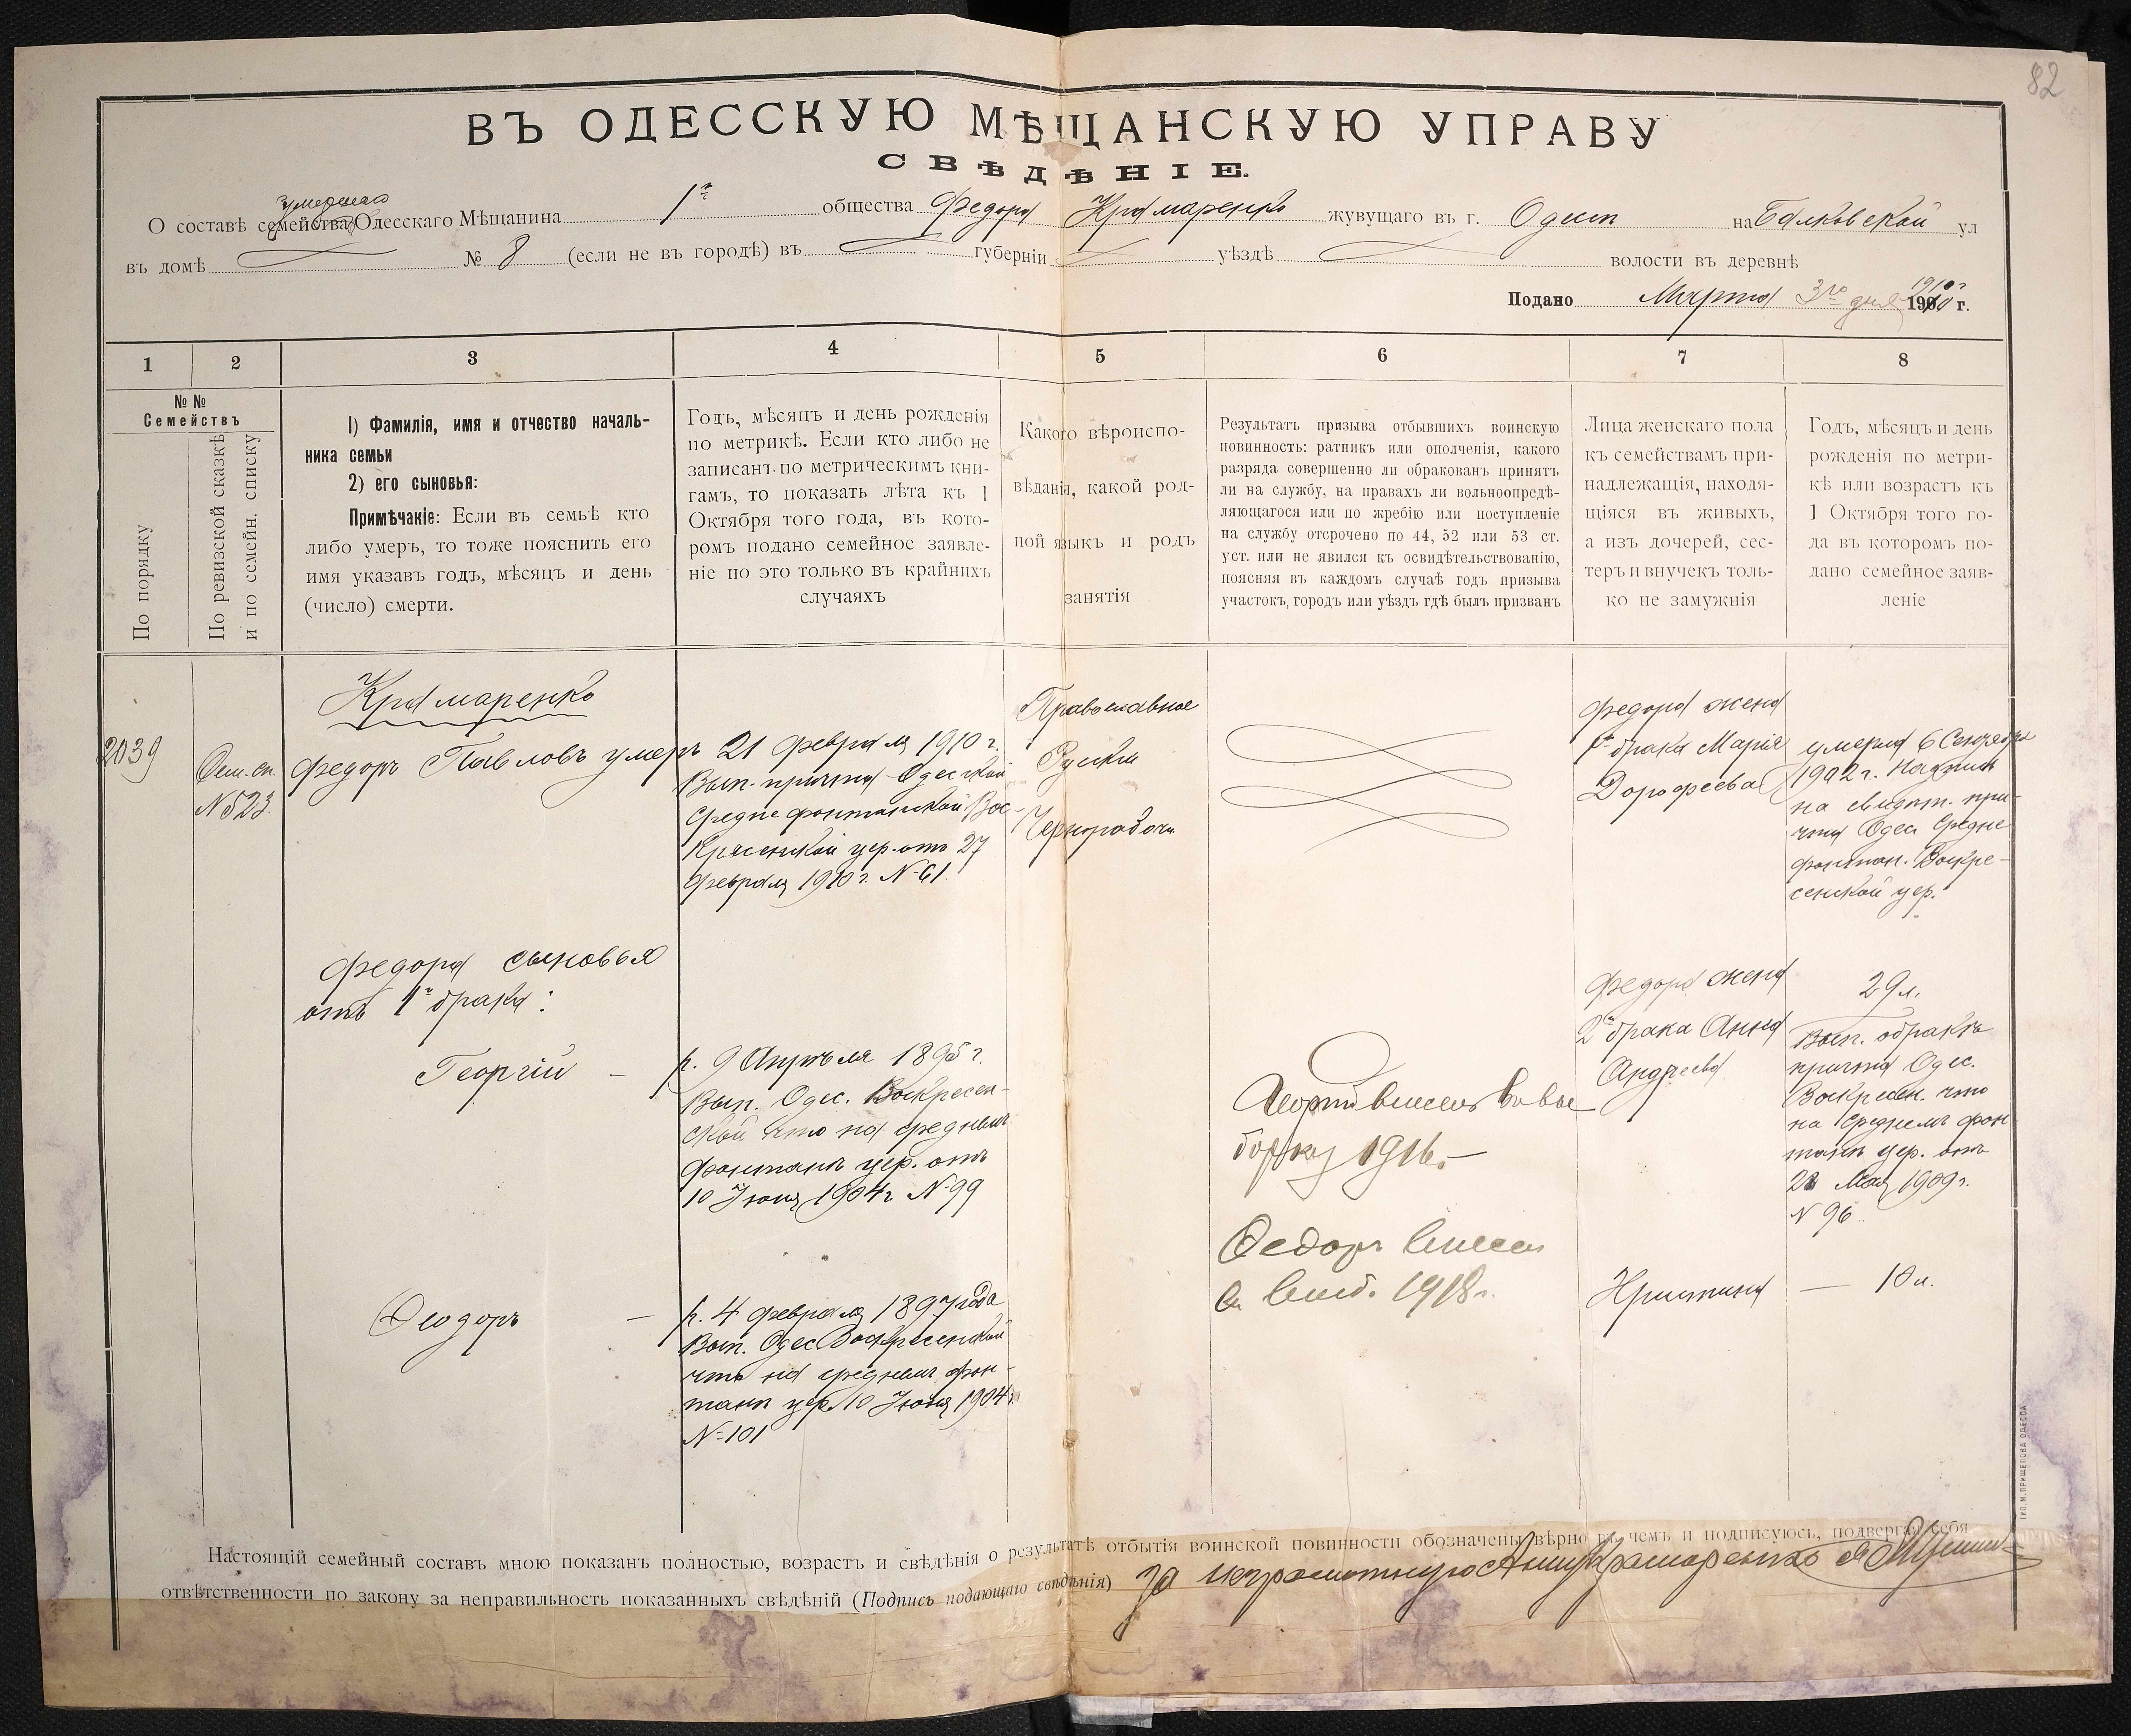 82
ВЪ ОДЕССКУЮ МѢЩАНСКУЮ УПРАВУ
СВѢДѢНІЕ.
умершаго
О составѣ семейства Одесскаго Мѣщанина 1го общества Федора Крамаренко жувущаго въ г. Одессѣ на Балковской ул
въ домѣ № 8 (если не въ городѣ) въ губерніи уѣздѣ волости въ деревнѣ
Подано Марта 3го дня 1910 г.
1 2 3 4 5 6 7 8
№ №
Семействъ
По порядку
По ревизской сказкѣ
и по семейн. списку
1) Фамилія, имя и отчество началь-
ника семьи
2) его сыновья:
Примѣчакіе: Если въ семьѣ кто
либо умеръ, то тоже пояснить его
имя указавъ годъ, мѣсяцъ и день
(число) смерти.
Годъ, мѣсяцъ и день рожденія
по метрикѣ. Если кто либо не
записанъ по метрическимъ кни-
гамъ, то показать лѣта къ 1
Октября того года, въ кото-
ромъ подано семейное заявле-
ніе но это только въ крайнихъ
случаяхъ
Какого вѣроиспо-
вѣданія, какой род-
ной языкъ и родъ
занятія
Результатъ призыва отбывшихъ воинскую
повинность: ратникъ или ополченія, какого
разряда совершенно ли обракованъ принятъ
ли на службу, на правахъ ли вольноопредѣ-
ляющагося или по жребію или поступленіе
на службу отсрочено по 44, 52 или 53 ст.
уст. или не явился къ освидѣтельствованію,
поясняя въ каждомъ случаѣ годъ призыва
участокъ, городъ или уѣздъ гдѣ былъ призванъ
Лица женскаго пола
къ семействамъ при-
надлежащія, находя-
щіяся въ живыхъ,
а изъ дочерей, сес-
теръ и внучекъ толь-
ко не замужнія
Годъ, мѣсяцъ и день
рожденія по метри-
кѣ или возрастъ къ
1 Октября того го-
да въ которомъ по-
дано семейное заяв-
леніе
2039
Сем. сп.
№ 523.
Крамаренко
Федоръ Павловъ умеръ 21 февраля 1910 г.
Вып. причта Одесской
Средне фонтанской Вос-
кресенской цер. отъ 27
февраля 1910 г. № 61.
Православное
Русскій
Чернорабочій
Федора жена
1го брака Марія
Дорофеева
умерла 6 Сентября
1902 г.
на причта Одес. Средне
фонтан. Воскре-
сенской цер.
Федора сыновья
отъ 1го брака:
Георгій – р. 9 Апрѣля 1895 г.
Вып. Одес. Воскресен-
ской что на среднемъ
фонтанѣ цер. отъ
10 Іюня 1904 г. № 99
Георгій внесенъ въ вы
борку 1916. –
Федора жена
2го брака Анна
Андреева
29 л.
Вып. о бракѣ
причта Одес.
Воскресен. что
на Среднемъ фон
танѣ цер. отъ
28 Мая 1909 г.
№ 96
Ѳеодоръ – р. 4 февраля 1897 года
Вып. Одес Воскресенской
что на среднемъ фон-
танѣ цер. 10 Іюня 1904 г.
№ 101
Ѳедоръ внесен
1918 г.
Христина – 10 л.
Настоящій семейный составъ мною показанъ полностью, возрастъ и свѣдѣнія о результатѣ отбытія воинской повинности обозначены вѣрно въ чемъ и подписуюсь, подвергая себя
отвѣтственности по закону за неправильность показанныхъ свѣдѣній (Подпись подающаго свѣдѣнія) За неграмотную Анну Крамаренко
ТИП. М. ПРИЩЕПОВА ОДЕССА